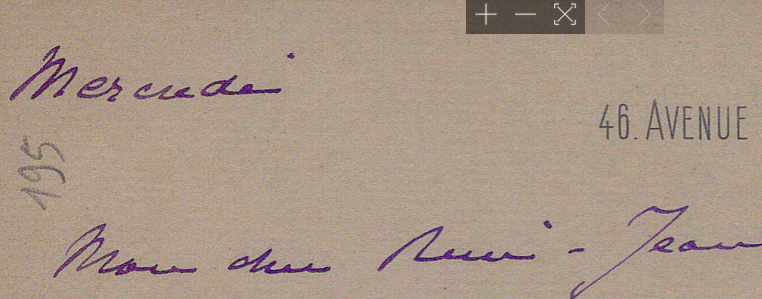 Mercredi
46. AVENUE
195
Mon cher René-Jean